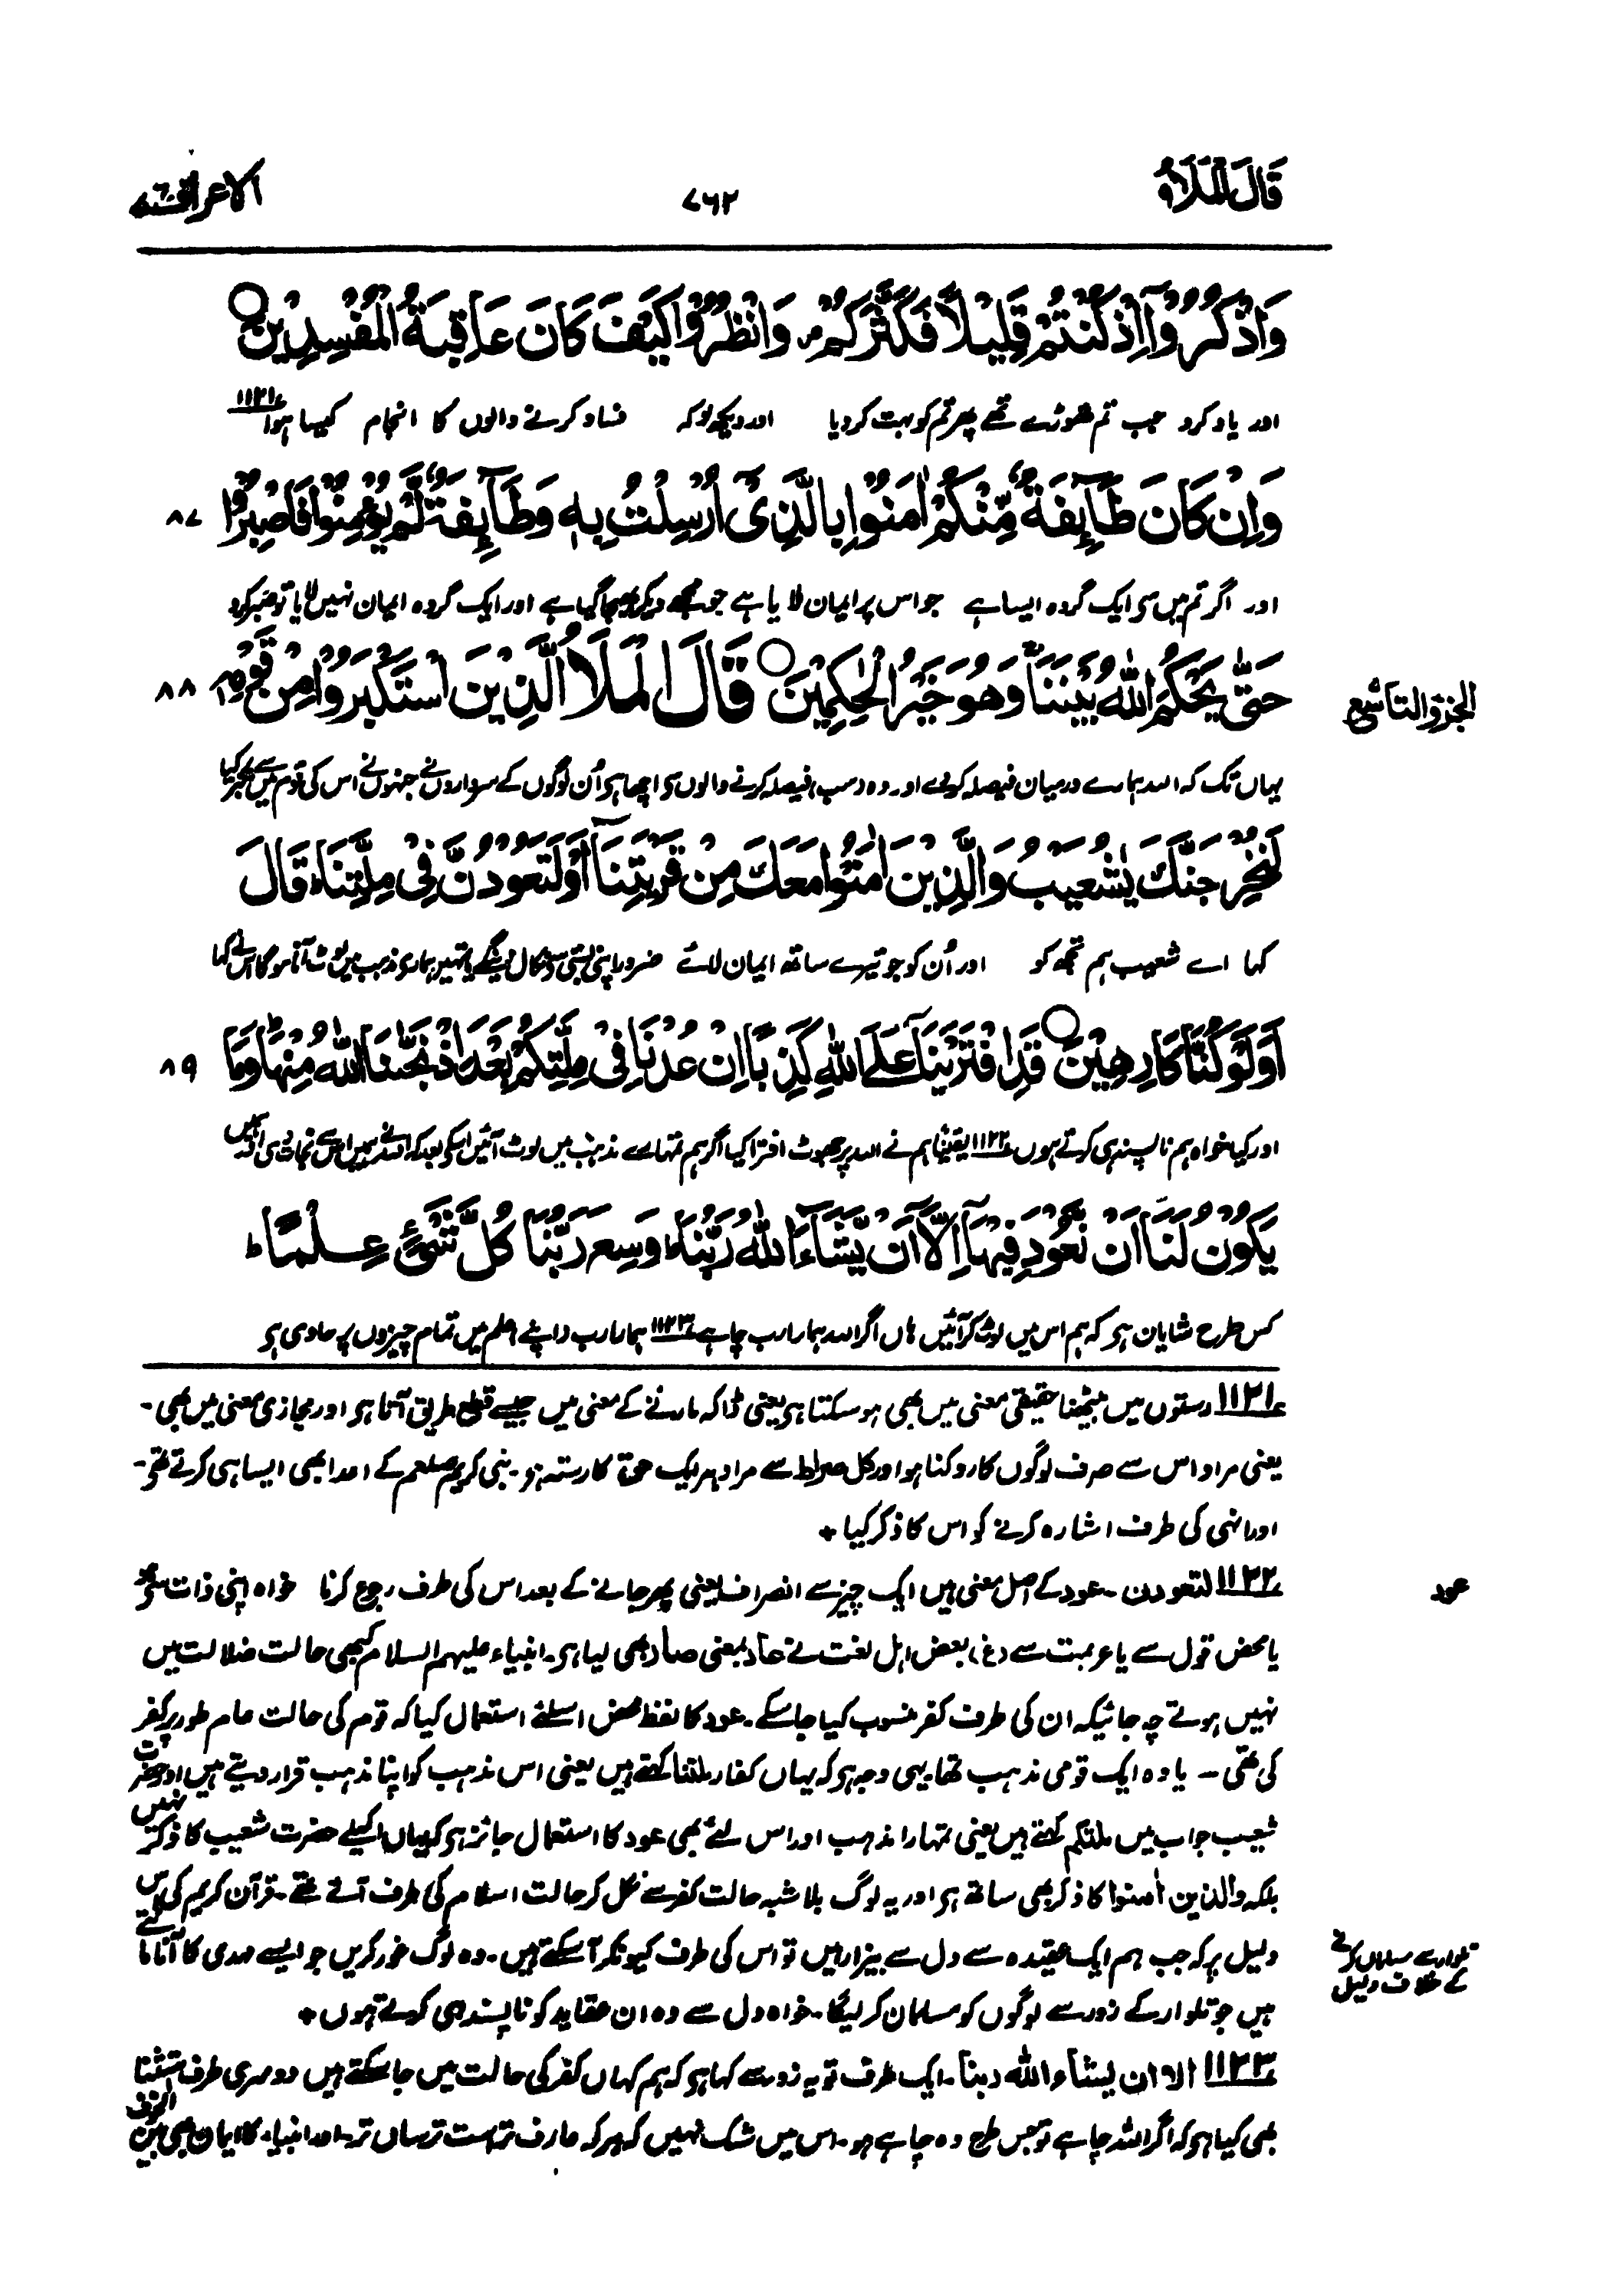 قَالَ الْمَلَاُ ۹
۷۶۲
الاعراف ۷
وَاذْكُرُوْٓا اِذْ كُنْتُمْ قَلِيْلًا فَكَثَّرَكُمْ ۪ وَانْظُرُوْا كَيْفَ كَانَ عَاقِبَةُ الْمُفْسِدِيْنَ ○
اور یاد کرو جب تم تھوڑے تھے پھر تم کو بہت کر دیا اور دیکھ لو کہ فساد کرنے والوں کا انجام کیسا ہوا ۱۱۲۱
وَاِنْ كَانَ طَآئِفَةٌ مِّنْكُمْ اٰمَنُوْا بِالَّذِيْٓ اُرْسِلْتُ بِهٖ وَطَآئِفَةٌ لَّمْ يُؤْمِنُوْا فَاصْبِرُوْا ۸۷
اور اگر تم میں سے ایک گروہ ایسا ہے جو اس پر ایمان لایا ہے جو مجھے دیکر بھیجا گیا ہے اور ایک گروہ ایمان نہیں لایا تو صبر کرو
حَتّٰى يَحْكُمَ اللّٰهُ بَيْنَنَا ۚ وَهُوَ خَيْرُ الْحٰكِمِيْنَ ○ قَالَ الْمَلَاُ الَّذِيْنَ اسْتَكْبَرُوْا مِنْ قَوْمِهٖ ۸۸
الجزؤ التاسع
یہاں تک کہ اللہ ہمارے درمیان فیصلہ کردے اور وہ (سب) فیصلہ کرنے والوں سے اچھا ہے اُن لوگوں کے سرداروں نے جنہوں نے اس کی قوم میں سے تکبر کیا
لَنُخْرِجَنَّكَ يٰشُعَيْبُ وَالَّذِيْنَ اٰمَنُوْا مَعَكَ مِنْ قَرْيَتِنَآ اَوْ لَتَعُوْدُنَّ فِيْ مِلَّتِنَا ؕ قَالَ
کہا اے شعیب ہم تجھ کو اور اُن کو جو تیرے ساتھ ایمان لائے ضرور اپنی بستی سے نکال دینگے یا تمہیں ہماری مذہب میں لوٹ آنا ہوگا اس نے کہا
اَوَلَوْ كُنَّا كَارِهِيْنَ ○ قَدِ افْتَرَيْنَا عَلَى اللّٰهِ كَذِبًا اِنْ عُدْنَا فِيْ مِلَّتِكُمْ بَعْدَ اِذْ نَجّٰىنَا اللّٰهُ مِنْهَا ؕ وَمَا ۸۹
اور کیا خواہ ہم ناپسند ہی کرتے ہوں ۱۱۲۲ یقیناً ہم نے اللہ پر جھوٹ افترا کیا اگر ہم تمہارے مذہب میں لوٹ آئیں اسکے بعد کہ اللہ نے ہمیں اس سے نجات دی اور ہمیں
يَكُوْنُ لَنَآ اَنْ نَّعُوْدَ فِيْهَآ اِلَّآ اَنْ يَّشَآءَ اللّٰهُ رَبُّنَا ؕ وَسِعَ رَبُّنَا كُلَّ شَيْءٍ عِلْمًا ؕ
کس طرح شایان ہے کہ ہم اس میں لوٹ کر آئیں ہاں اگر اللہ ہمارا رب چاہے ۱۱۲۳ ہمارا رب (اپنے) علم میں تمام چیزوں پر حاوی ہے
۱۱۲۱ رستوں میں بیٹھنا حقیقی معنی میں بھی ہو سکتا ہے یعنی ڈاکہ مارنے کے معنی میں جیسے قطع طریق آتا ہے اور مجازی معنی میں بھی۔
یعنی مراد اس سے صرف لوگوں کا روکنا ہو اور کل صراط سے مراد ہر ایک حق کا رستہ ہو۔ نبی کریم صلعم کے اعدا بھی ایسا ہی کرتے تھے۔
اور انہی کی طرف اشارہ کرنے کو اس کا ذکر کیا +
۱۱۲۲ لتعودن۔ عود کے اصل معنی ہیں ایک چیز سے انصراف یعنی پھر جانے کے بعد اس کی طرف رجوع کرنا خواہ اپنی ذات سے ہو
عود
یا محض قول سے یا عزیمت سے (غ) بعض اہل لغت نے عاد بمعنی صار بھی لیا ہے۔ انبیاء علیہم السلام کبھی حالت ضلالت میں
نہیں ہوتے چہ جائیکہ ان کی طرف کفر منسوب کیا جاسکے۔ عود کا لفظ محض اسلئے استعمال کیا کہ قوم کی حالت عام طور پر کفر
کی تھی۔ یا وہ ایک قومی مذہب تھا۔ یہی وجہ ہے کہ یہاں کفار ملتنا کہتے ہیں یعنی اس مذہب کو اپنا مذہب قرار دیتے ہیں اور حضرت
شعیب جواب میں ملتکم کہتے ہیں یعنی تمہارا مذہب اور اس لئے بھی عود کا استعمال جائز ہے کہ یہاں اکیلے حضرت شعیب کا ذکر نہیں
بلکہ والذین اٰمنوا کا ذکر بھی ساتھ ہے اور یہ لوگ بلاشبہ حالت کفر سے نکل کر حالت اسلام کی طرف آئے تھے۔ قرآن کریم کی اس
دلیل پر کہ جب ہم ایک عقیدہ سے دل سے بیزار ہیں تو اس کی طرف کیونکر آ سکتے ہیں۔ وہ لوگ غور کریں جو ایسے مہدی کا آنا مانتے
تلوار سے مسلمان کرنے
کے خلاف دلیل
ہیں جو تلوار کے زور سے لوگوں کو مسلمان کر لیگا۔ خواہ دل سے وہ ان عقاید کو ناپسند ہی کرتے ہوں +
۱۱۲۳ الا ان یشاء اللہ ربنا۔ ایک طرف تو یہ زور سے کہا ہے کہ ہم کہاں کفر کی حالت میں جا سکتے ہیں دوسری طرف استثنا
بھی کیا ہے کہ اگر اللہ چاہے تو جس طرح وہ چاہے ہو۔ اس میں شک نہیں کہ ہر کہ عارف تر است ترساں تر۔ اور انبیاء کا ایمان بھی بین الخوف